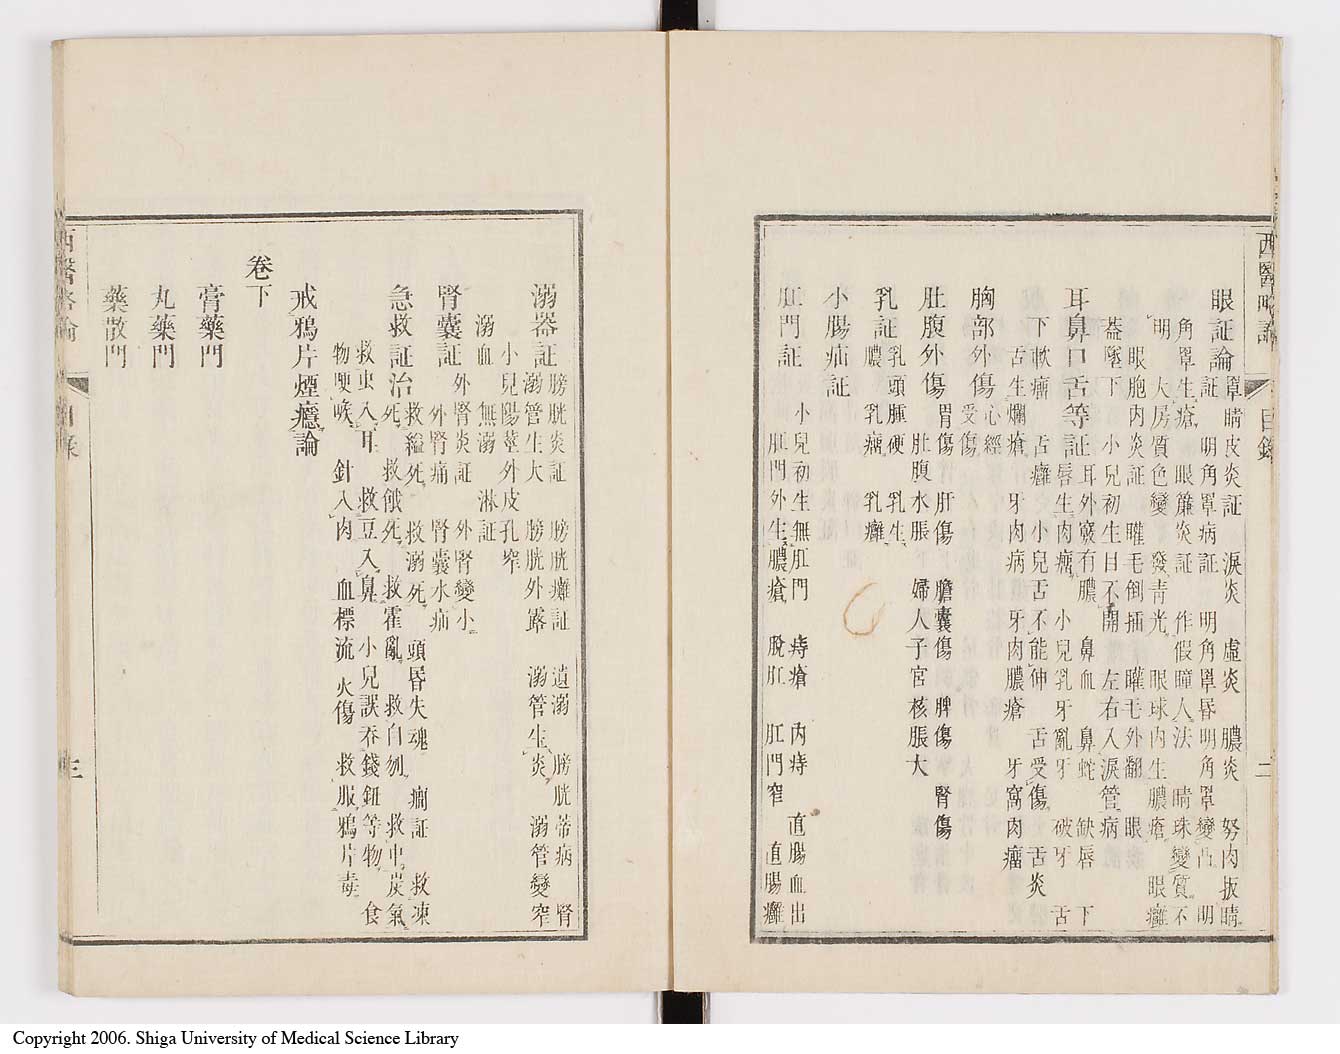 西醫略論
目錄
二
眼証論
罩睛皮炎証 淚炎 虛炎 膿炎 努肉扳睛
証 明角罩病証 明角罩昏 明角罩變凸 明
角罩生瘡 眼簾炎証 作假瞳人法 睛珠變質不
明 大房質色變 發青光 眼球內生膿瘡 眼癰
眼胞內炎証 㬢毛倒插 㬢毛外翻 眼
蓋墜下 小兒初生目不開 左右入淚管病
耳鼻口舌等証
耳外竅有膿 鼻血 鼻蛇 缺唇 下
唇生肉瘤 小兒乳牙亂牙 破牙 舌
下軟瘤 舌癰 小兒舌不能伸 舌受傷 舌炎
舌生爛瘡 牙肉病 牙肉膿瘡 牙窩肉瘤
胸部外傷
心經
受傷
肚腹外傷
胃傷 肝傷 膽囊傷 脾傷 腎傷
肚腹水脹 婦人子宮核脹大
乳証
乳頭腫硬 乳生
膿 乳瘤 乳癰
小腸疝証
肛門証
小兒初生無肛門 痔瘡 內痔 直腸血出
肛門外生膿瘡 脫肛 肛門窄 直腸癰
溺器証
膀胱炎証 膀胱癰証 遺溺 膀胱蒂病 腎
溺管生大 膀胱外露 溺管生炎 溺管變窄
小兒陽莖外皮孔窄
溺血 無溺 淋証
腎囊証
外腎炎証 外腎變小
外腎痛 腎囊水疝
急救証治
救縊死 救溺死 頭昏失魂 癇証 救凍
死 救餓死 救霍亂 救自刎 救中炭氣
救虫入耳 救豆入鼻 小兒誤吞錢鈕等物 食
物哽喉 針入肉 血標流 火傷 救服鴉片毒
戒鴉片煙癮論
卷下
膏藥門
丸藥門
藥散門
西醫略論
目錄
三
Copyright 2006. Shiga University of Medical Science Library